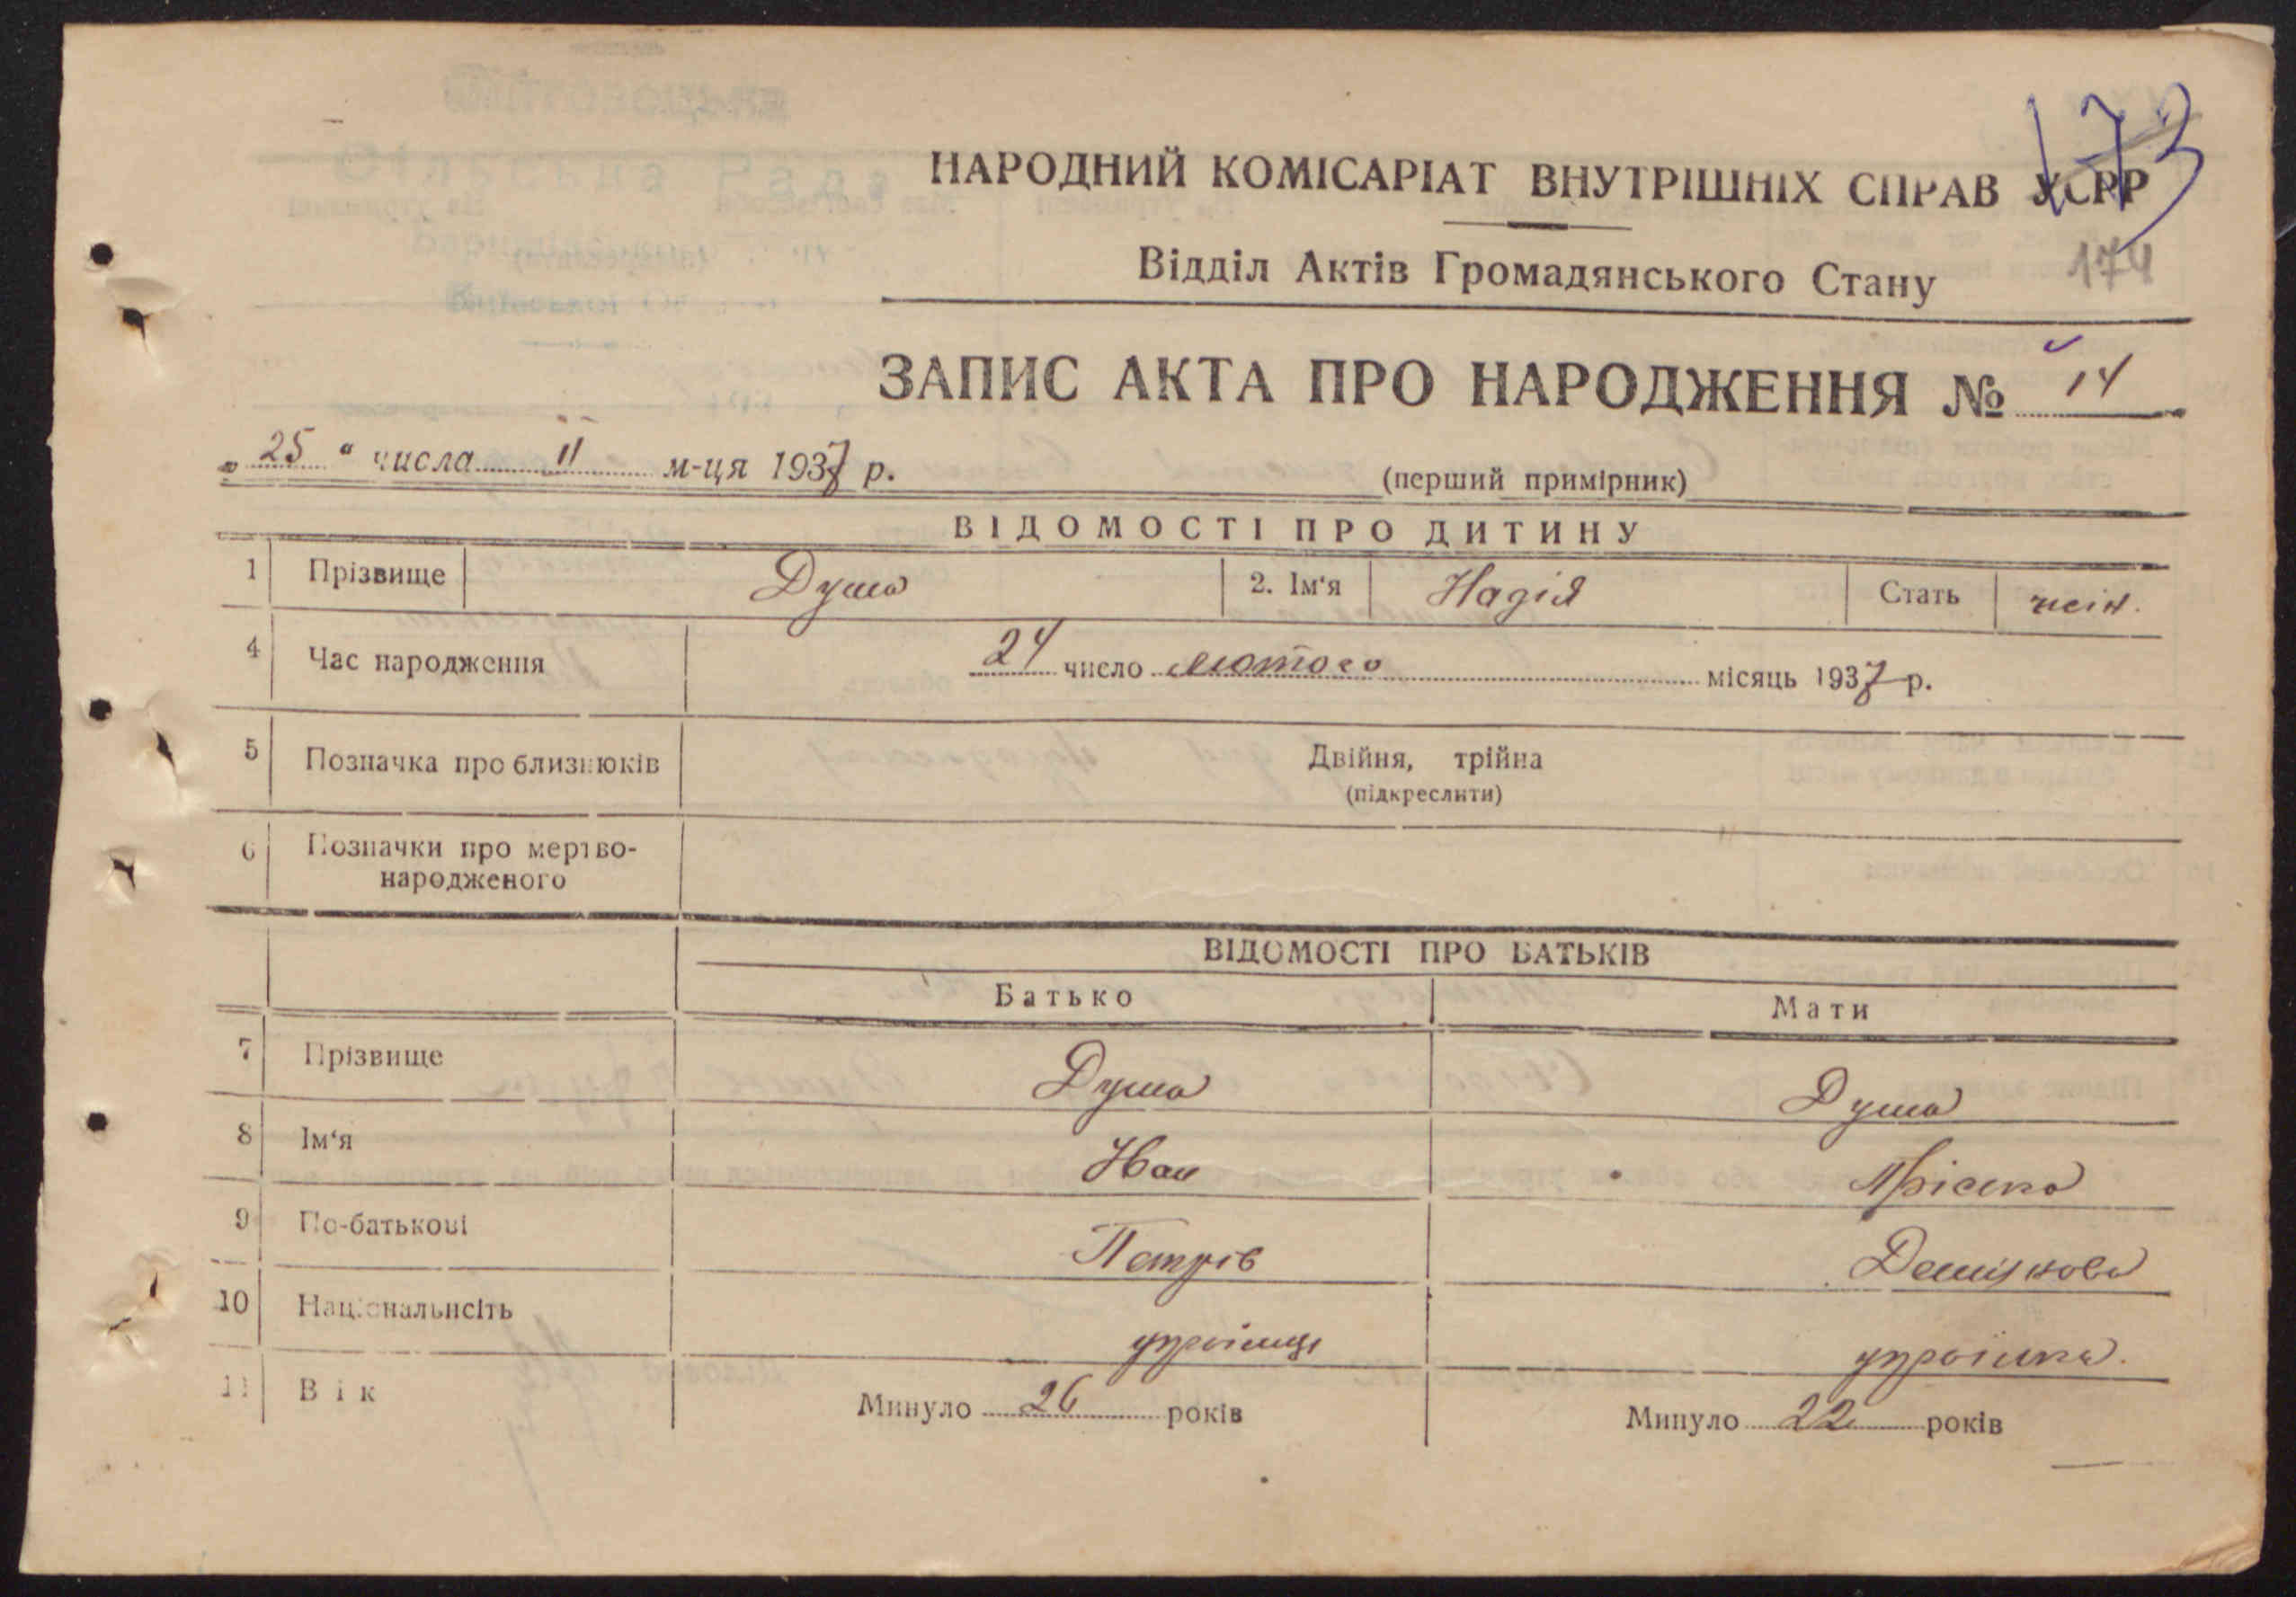 173
НАРОДНИЙ КОМІСАРІАТ ВНУТРІШНІХ СПРАВ УСРР
Відділ Актів Громадянського Стану 174
ЗАПИС АКТА ПРО НАРОДЖЕННЯ № 14
„ 25 “ числа II м-ця 1937 р.
(перший примірник)
ВІДОМОСТІ ПРО ДИТИНУ
1 Прізвище Душа 2. Ім‘я Надія Стать жін.
4 Час народження 24 число лютого місяць 1937 р.
5 Позначка про близнюків Двійня, трійна
(підкреслити)
6 Позначки про мертво-
народженого
ВІДОМОСТІ ПРО БАТЬКІВ
Батько Мати
7 Прізвище Душа Душа
8 Ім‘я Иван
9 По-батькові Петрів
10 Національнсіть українець українка.
11 Вік Минуло 26 років Минуло 22 років